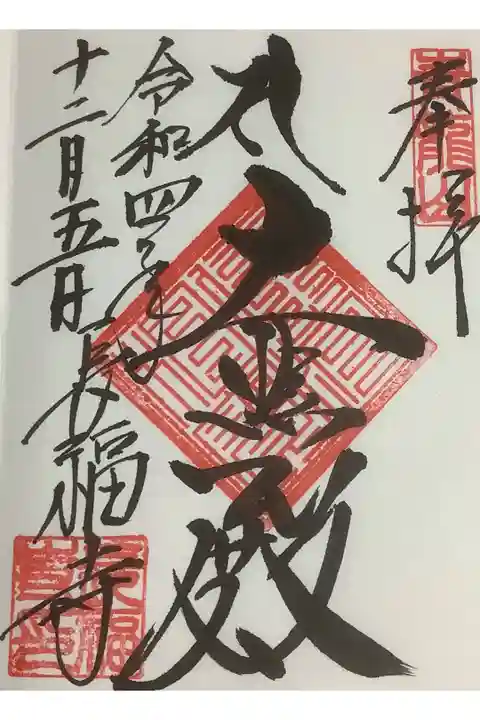 奉拝
大悲殿
令和四年
十二月五日 長福寺